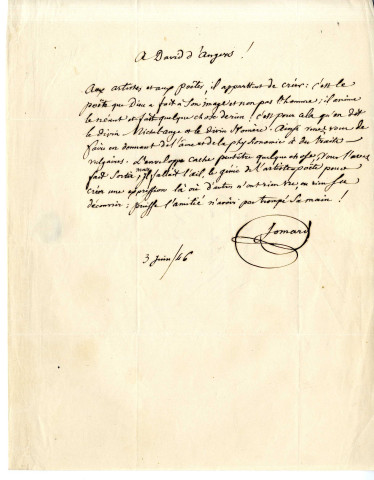 A David d'Angers !
Aux artistes et aux poëtes, il appartient de créer : c'est le
poëte que Dieu a fait à son image et non pas l'homme ; il anime
le néant et fait quelque chose de rien ! c'est pour cela qu'on dit
le divin Michelange et le divin Homère. Ainsi venez vous de
faire en donnant de l'âme et de la physionomie à des traits
vulgaires. L'enveloppe cache peut-être quelque chose, vous l'avez
fait sortir ; mais il fallait l'œil, le génie de l'artiste-poëte pour
créer une expression là où d'autres n'ont rien vu, ou rien su
découvrir : puisse l'amitié n'avoir pas trompé sa main !
Jomard
3 Juin /46